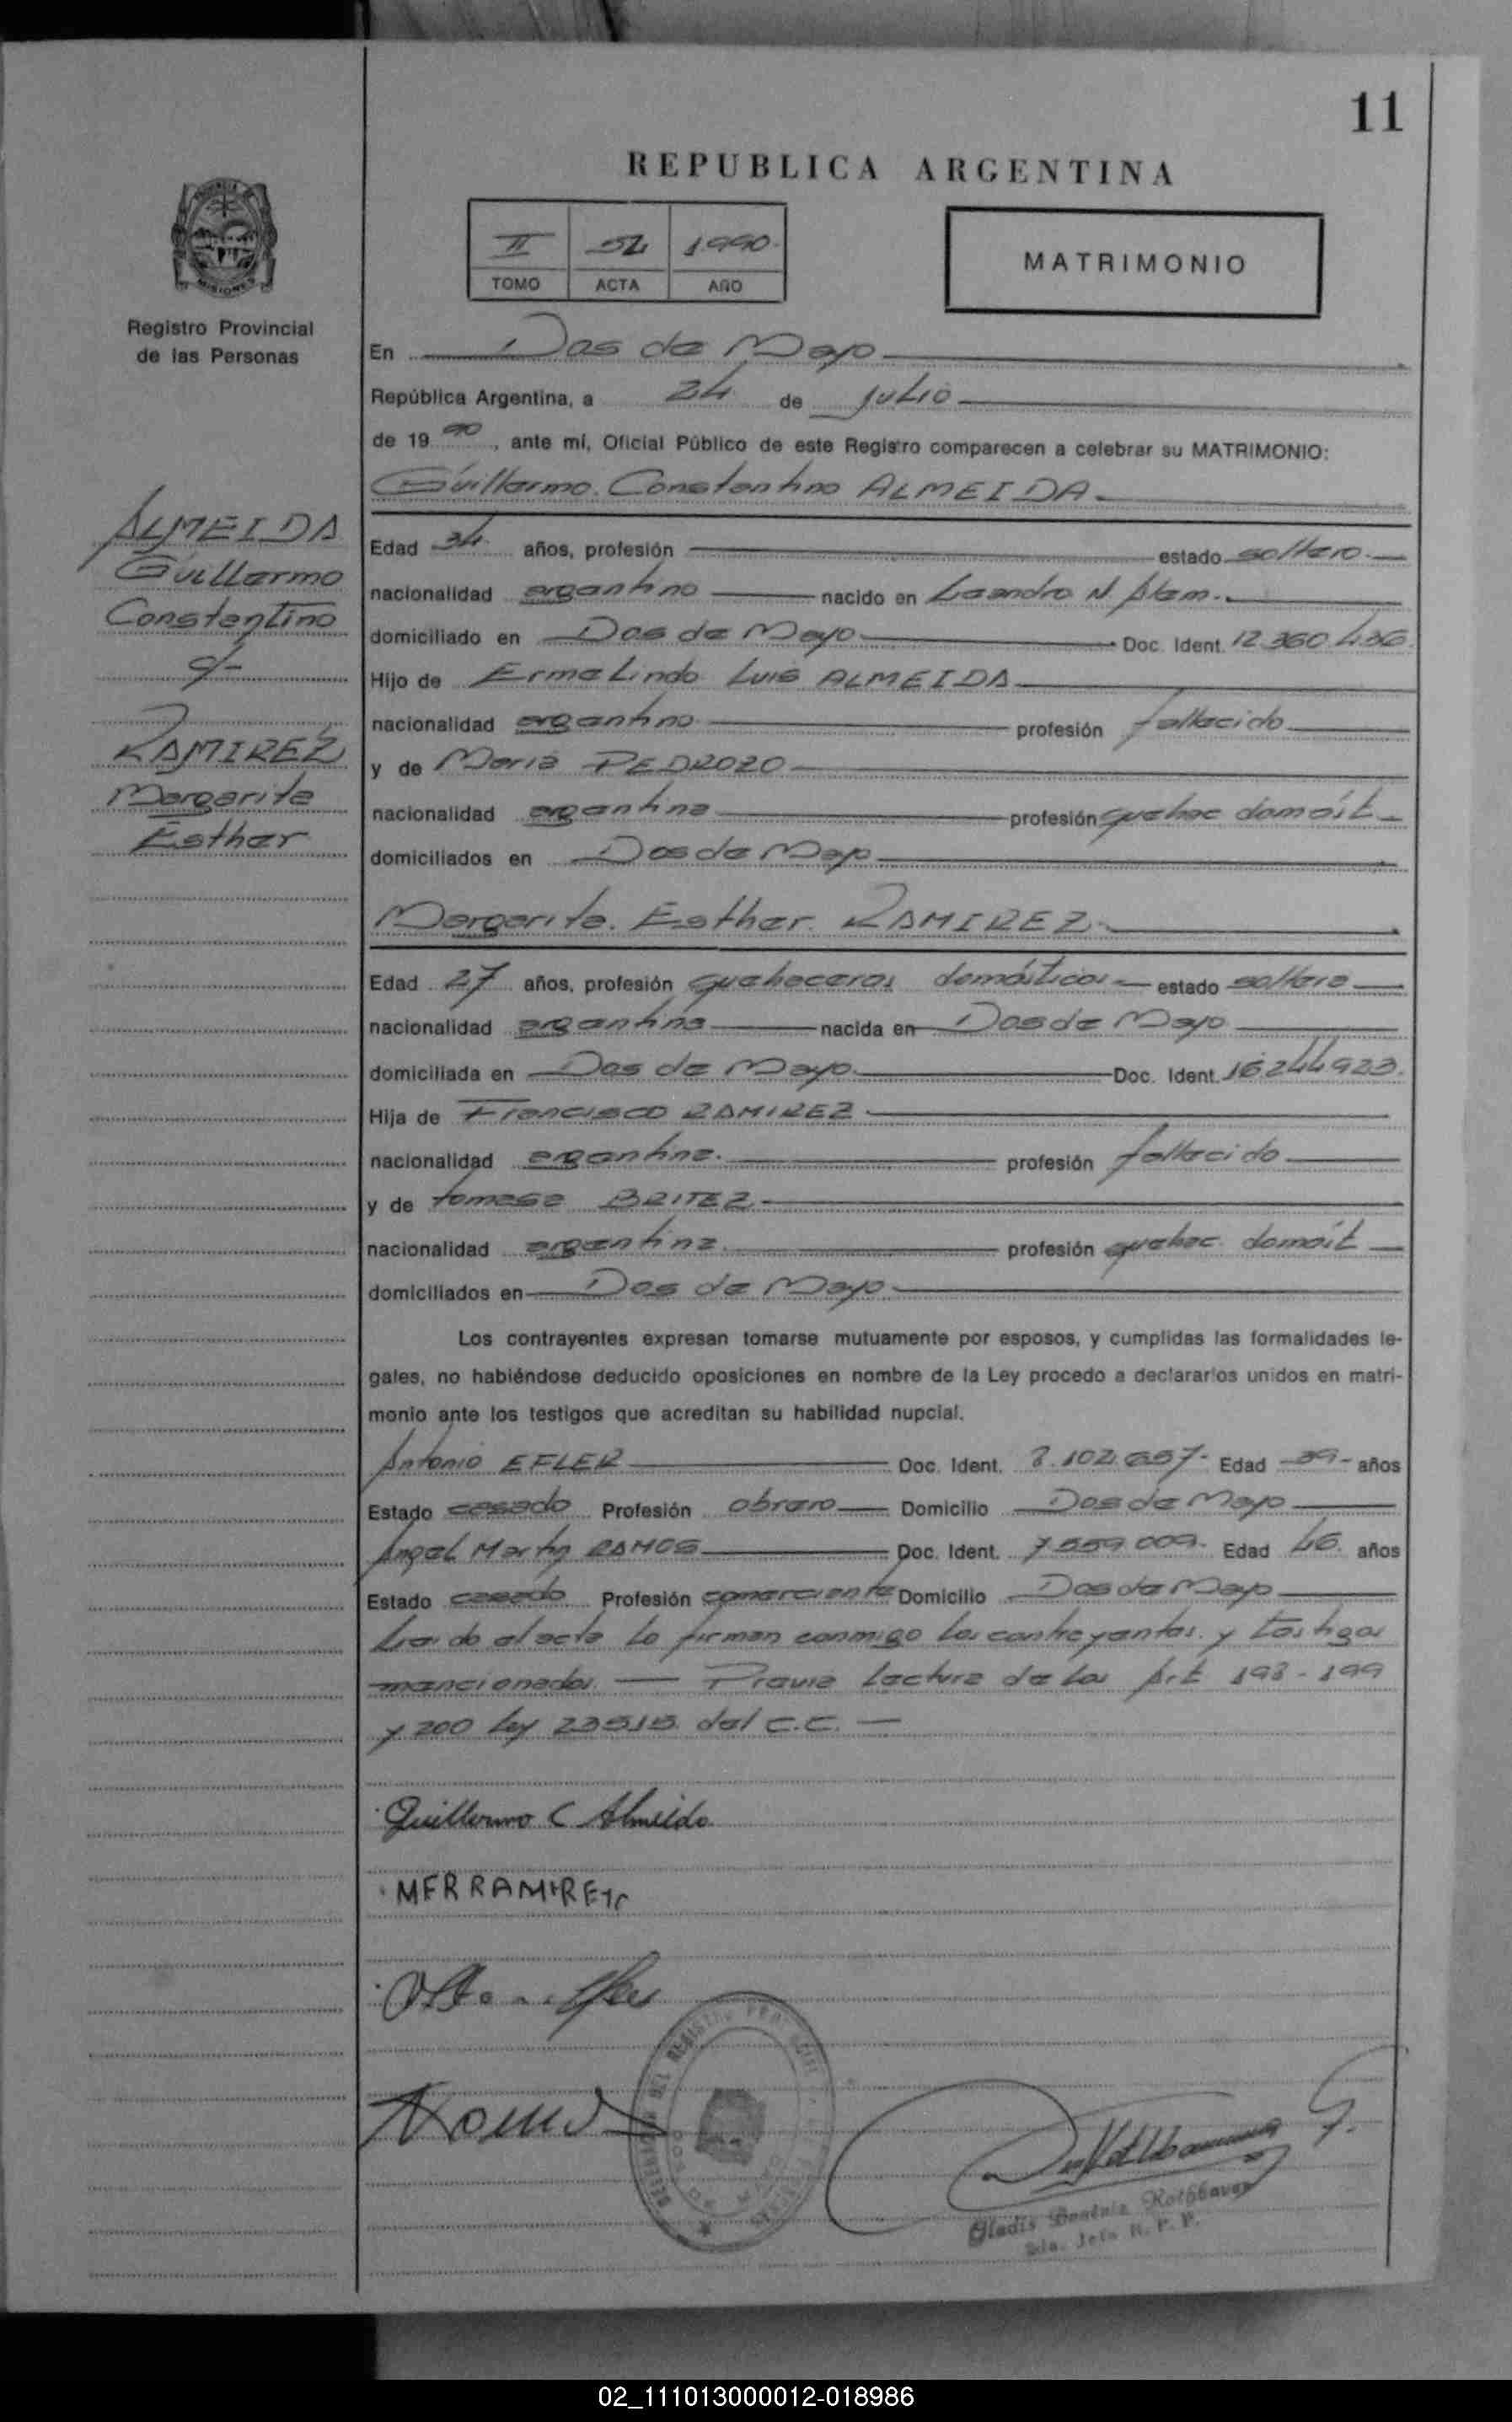 11
REPUBLICA ARGENTINA
II 54 1990
TOMO ACTA AÑO
MATRIMONIO
MISIONES
Registro Provincial
de las Personas
ALMEIDA
Guillermo
Constantino
c/-
RAMIREZ
Margarita
Esther
En Dos de Mayo
República Argentina, a 24 de julio
de 1990, ante mí, Oficial Público de este Registro comparecen a celebrar su MATRIMONIO:
Guillermo Constantino ALMEIDA
Edad 34 años, profesión estado soltero
nacionalidad argentino nacido en Leandro N Alem.
domiciliado en Dos de Mayo Doc. Ident. 12.360.436
Hijo de Ermelindo Luis ALMEIDA
nacionalidad argentino profesión fallecido
y de María PEDROZO
nacionalidad argentina profesión quehac domést
domiciliados en Dos de Mayo
Margarita Esther RAMIREZ
Edad 27 años, profesión quehaceres domésticos estado soltera
nacionalidad argentina nacida en Dos de Mayo
domiciliada en Dos de Mayo Doc. Ident. 16244923
Hija de Francisco RAMIREZ
nacionalidad argentina. profesión fallecido
y de tomasa BRITEZ
nacionalidad argentina profesión quehac domést
domiciliados en Dos de Mayo
Los contrayentes expresan tomarse mutuamente por esposos, y cumplidas las formalidades le-
gales, no habiéndose deducido oposiciones en nombre de la Ley procedo a declararlos unidos en matri-
monio ante los testigos que acreditan su habilidad nupcial.
Antonio EFLER Doc. Ident. Edad 39 años
Estado casado Profesión obrero Domicilio Dos de Mayo
Angel Martin RAMOS Doc. Ident. 7.559.009 Edad 46 años
Estado casado Profesión comerciante Domicilio Dos de Mayo
Leido el acta la firman conmigo los contrayentes y testigos
mencionados — Previa lectura de los Art 198-199
y 200 Ley 23515 del C.C. —
Guillermo C Almeida
MER RAMIREZ
Gladis Beatriz Rothbauer
Jefe R. P. P.
02_111013000012-018986